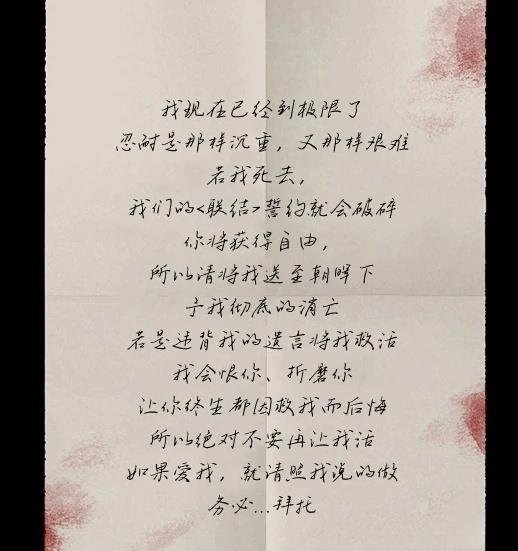 我现在已经到极限了
忍耐是那样沉重，又那样艰难
若我死去，
我们的<联结>誓约就会破碎
你将获得自由，
所以请将我送至朝晖下
予我彻底的消亡
若是违背我的遗言将我救活
我会恨你、折磨你
让你终生都因救我而后悔
所以绝对不要再让我活
如果爱我，就请照我说的做
务必...拜托